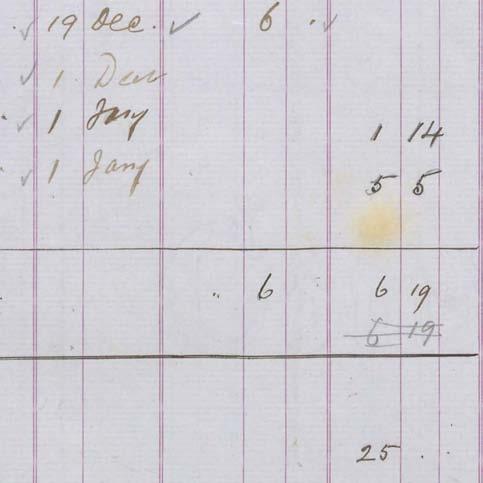 19 Dec. 6
1
1 Jany 1 14
1 Jany 5 5
" 6 6 19
6 19
25 . .